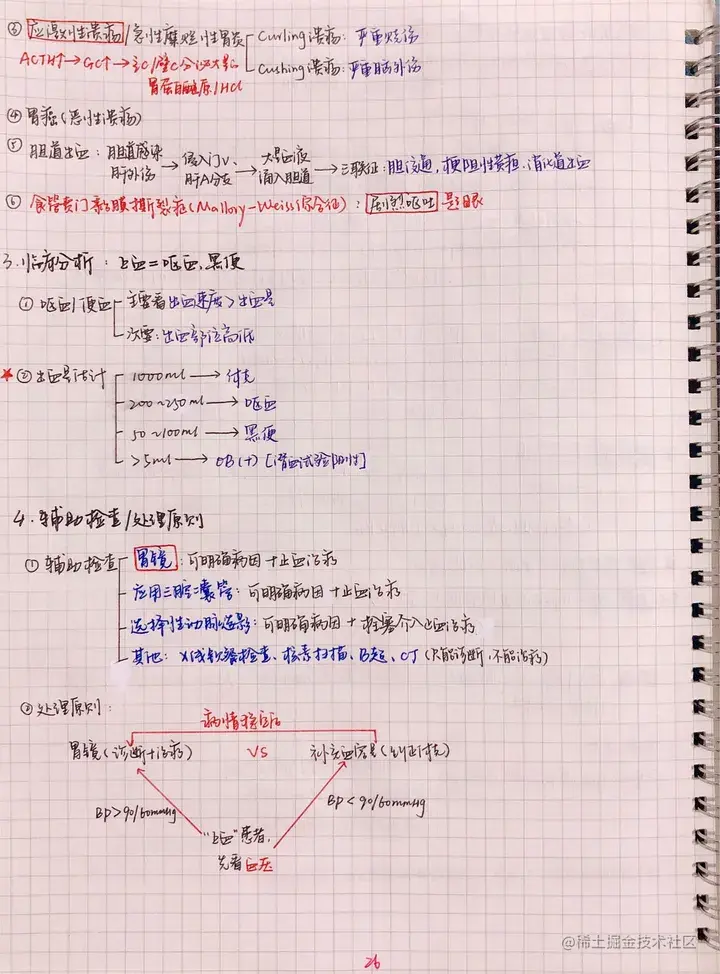 ③ 应激性溃疡/急性糜烂性胃炎 Curling溃疡：严重烧伤
Cushing溃疡：严重脑外伤
ACTH↑→GC↑→主C/壁C分泌大量胃蛋白酶原/HCl
④ 胃癌(恶性溃疡)
⑤ 胆道出血：胆道感染 肝外伤 → 侵入门V、肝A分支 → 大量血液涌入胆道 → 三联征：胆绞痛，梗阻性黄疸，消化道出血
⑥ 食管贲门黏膜撕裂症(Mallory-Weiss综合征)：剧烈呕吐是题眼
3. 临床分析：上血=呕血、黑便
① 呕血/便血 主要看出血速度>出血量
次要：出血部位高低
★ ② 出血量估计 1000ml → 休克
200~250ml → 呕血
50~100ml → 黑便
>5ml → OB(+) [潜血试验阳性]
4. 辅助检查/处理原则
① 辅助检查 胃镜：可明确病因+止血治疗
应用三腔二囊管：可明确病因+止血治疗
选择性动脉造影：可明确病因+栓塞介入止血治疗
其他：X线钡餐检查、核素扫描、B超、CT(只能诊断，不能治疗)
② 处理原则：
病情稳定后
胃镜(诊断+治疗) VS 补充血容量(纠正休克)
Bp>90/60mmHg Bp<90/60mmHg
"上血"患者，
先看血压
26
@稀土掘金技术社区